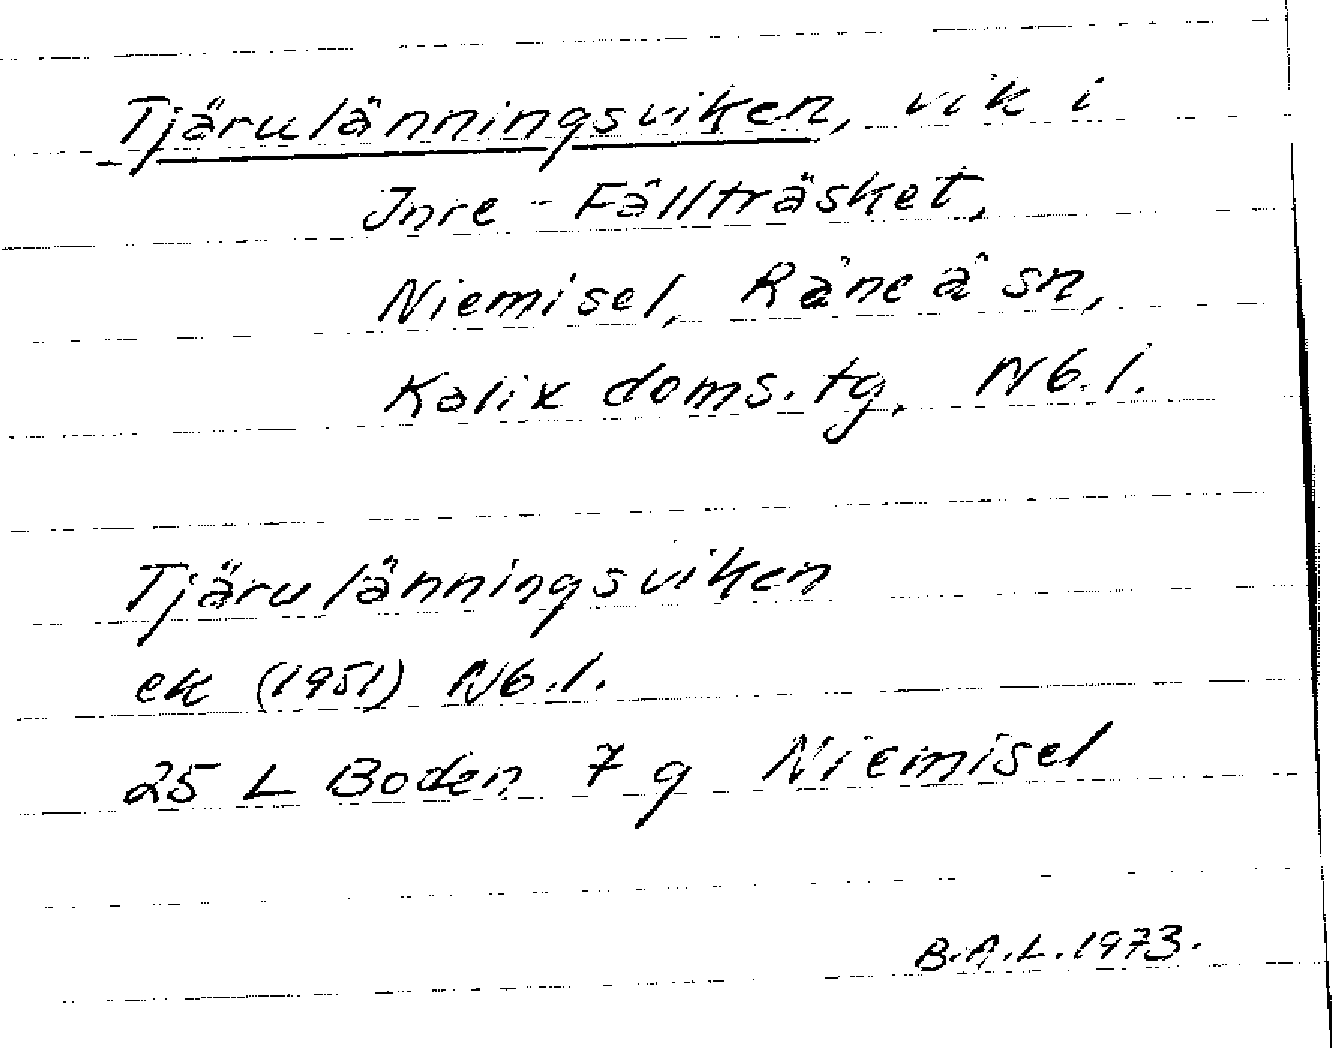 Tjärulänningsviken, vik i
Inre-Fällträsket,
Niemisel, Råneå sn,
Kalix doms.tg, Nb.l.
Tjärulänningsviken
ek (1951) Nb.l.
25 L Boden 7 g Niemisel
B.A.L.1973.